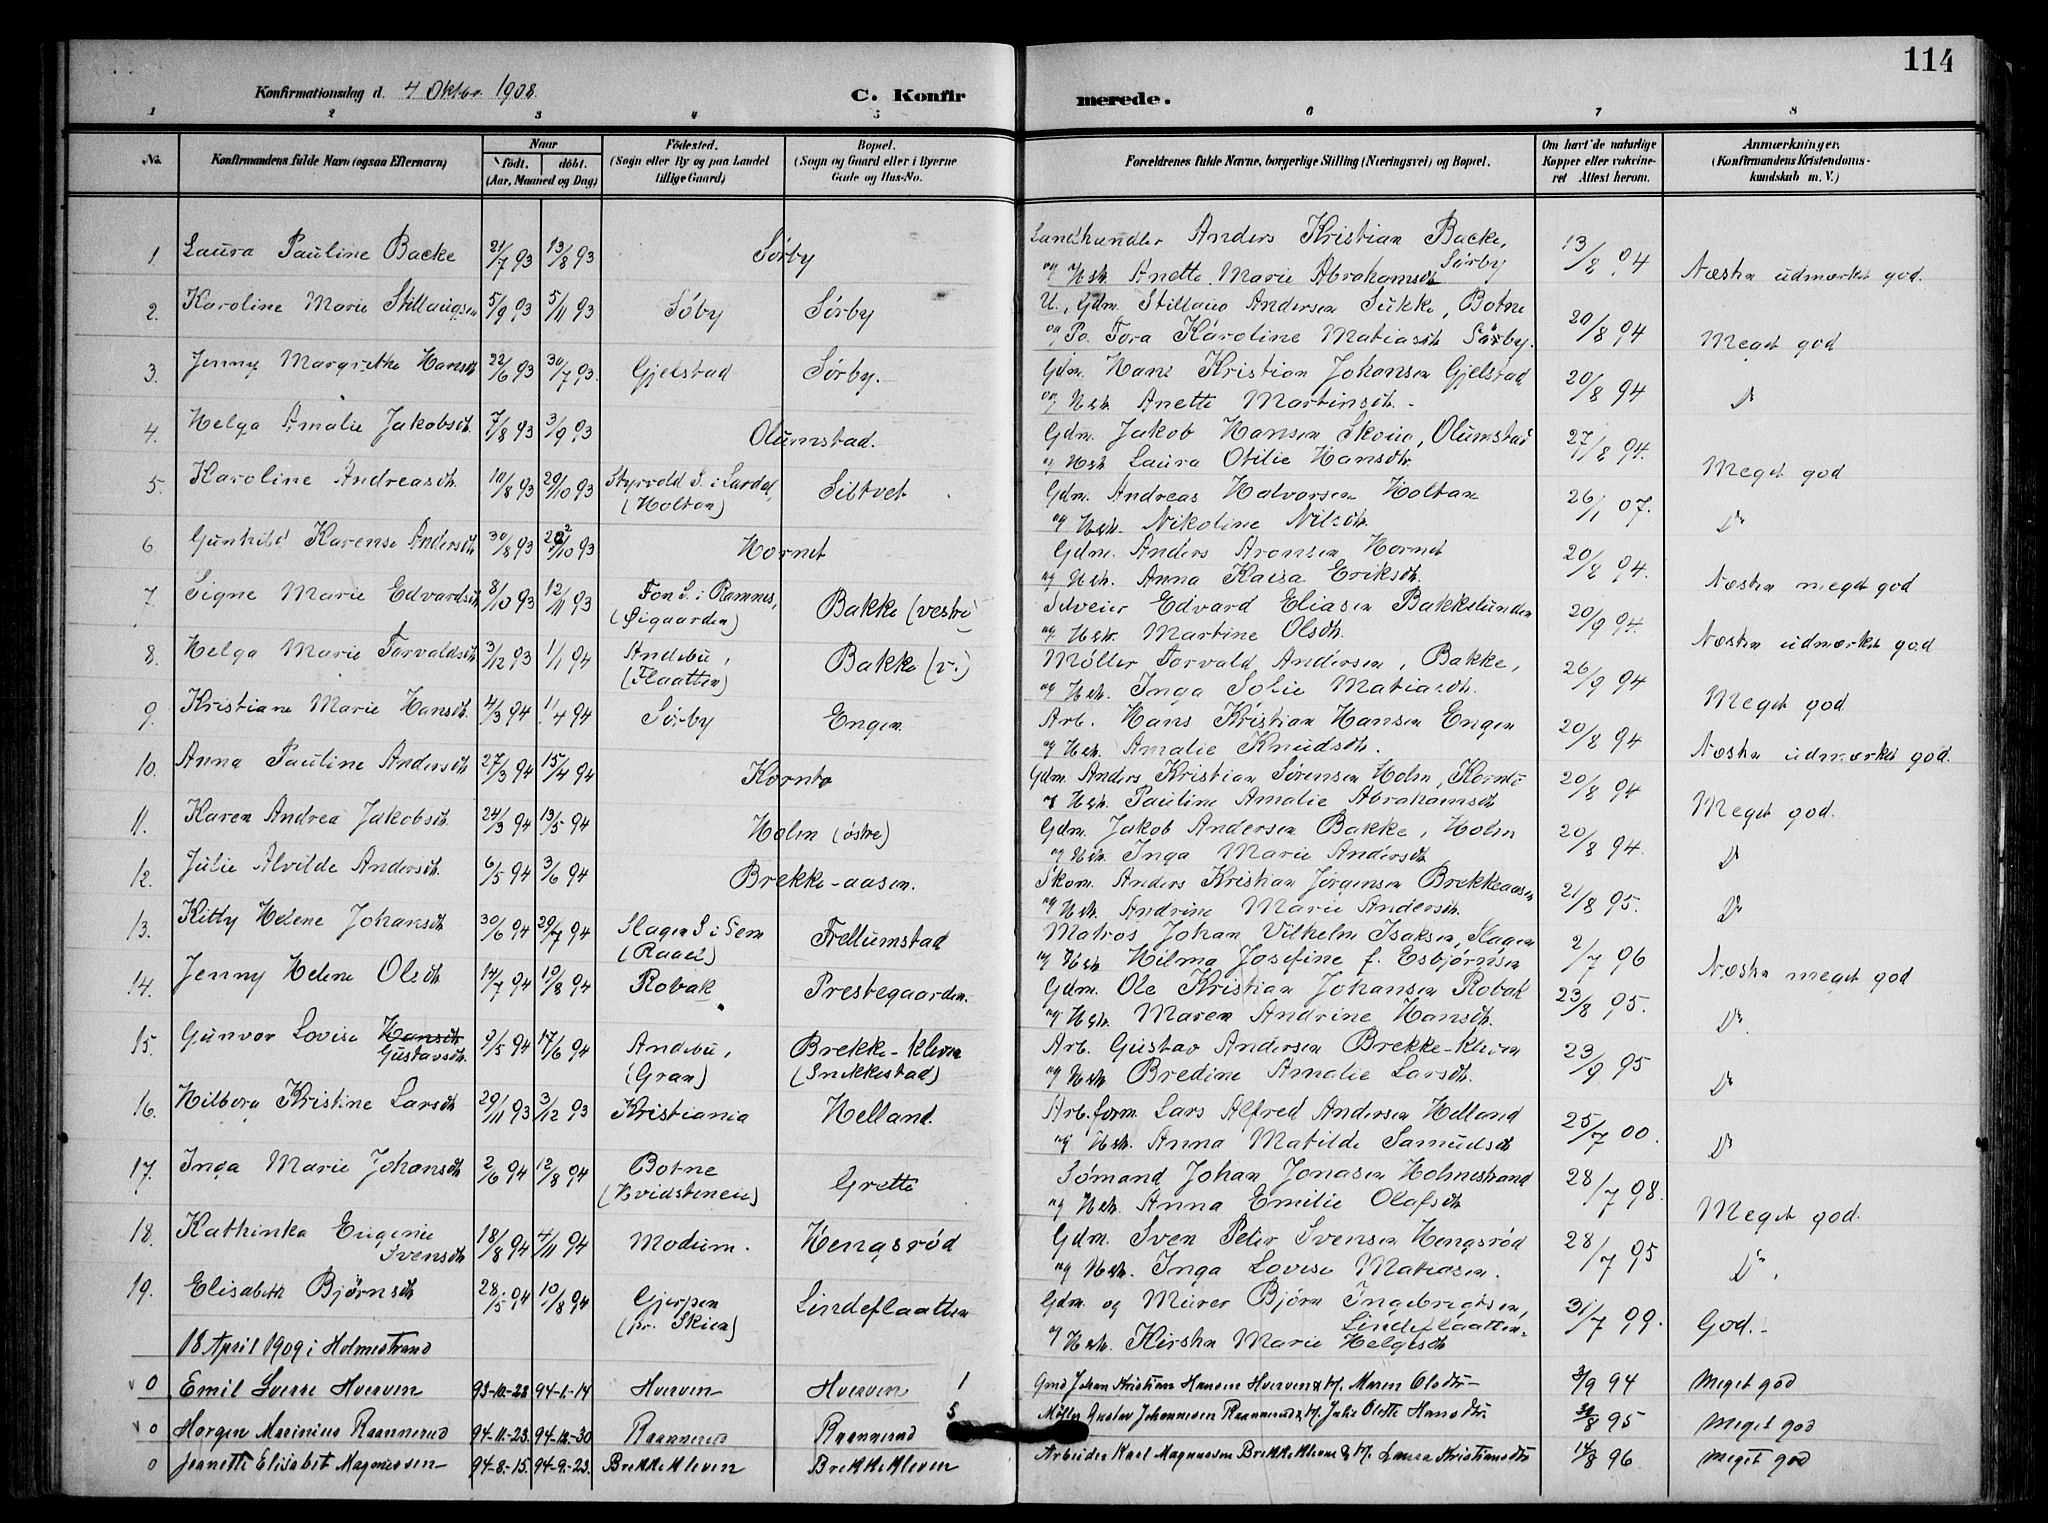 114
Konfirmationsdag d. 4 Oktbr. 1908.
C. Konfirmerede.
1 2 3 4 5 6 7 8
No. Konfirmandens fulde Navn (ogsaa Efternavn) Naar født. døbt. (Aar, Maaned og Dag) Fødested. (Sogn eller By og paa Landet tillige Gaard) Bopæl. (Sogn og Gaard eller i Byerne Gade og Hus-No. Forældrenes fulde Navne, borgerlige Stilling (Næringsvei) og Bopæl. Om havt de naturlige Kopper eller vakcineret Attest herom. Anmærkninger. (Konfirmandens Kristendomskundskab m. V.)
1. Laura Pauline Backe 21/7 93 13/8 93 Sørby Landhandler Anders Kristian Backe, Sørby
og Hst. Anette Marie Abrahamsdt 13/8 04 Næsten udmærket god.
2. Karoline Marie Stillaugsen 5/9 93 5/11 93 Søby Sørby U., Gdm. Stillaug Andersen Sukke, Botne
og Po. Tora Karoline Matiasdt Sørby. 20/8 94 Meget god
3. Jenny Margrethe Hansdt 22/6 93 30/7 93. Gjelstad Sørby. Gdm. Hans Kristian Johansen Gjelstad
og Hst. Anette Martinsdt. 20/8 94 Do
4. Helga Amalie Jakobsdt. 7/8 93 3/9 93 Olumstad. Gdm. Jakob Hansen Skoug, Olumstad
og Hst Laura Otilie Hansdt. 27/8 94. Meget god
5. Karoline Andreasdt. 10/8 93 29/10 93 Styrvold S. i Lardal, (Holtan) Siltvet Gdm. Andreas Halvorsen Holtan
og Hst. Nikoline Nilsdt. 26/1 07. Do
6. Gunhild Karense Andersdt 30/8 93 22/10 93 Hornet Gdm. Anders Aronsen Hornet
og Hst. Anna Kaisa Eriksdt. 20/8 94. Næsten meget god
7. Signe Marie Edvardsdt 8/10 93 12/11 93 Fon S. i Ramnes, (Øigaarden) Bakke (vestre) Selveier Edvard Eliasen Bakkelunden
og Hst. Martine Olsdt. 20/9 94. Næsten udmærket god
8. Helga Marie Torvaldsdt 3/12 93 1/1 94 Andebu, (Flaatten) Bakke (v.) Møller Torvald Andersen, Bakke,
og Hst. Inga Sofie Matiasdt. 26/9 94 Meget god
9. Kristiane Marie Hansdt. 4/3 94 11/4 94 Sørby Engen. Arb. Hans Kristian Hansen Engen
og Hst. Amalie Knudsdt. 20/8 94 Næsten udmærket god.
10. Anna Pauline Andersdt 27/3 94 15/4 94 Kornto Gdm. Anders Kristian Sørensen Holm, Kornto
og Hst. Pauline Amalie Abrahamsdt 20/8 94 Meget god.
11. Karen Andrea Jakobsdt. 24/3 94 13/5 94 Holm (østre) Gdm. Jakob Andersen Bakke, Holm
og Hst. Inga Marie Andersdt. 20/8 94. Do
12. Julie Alvilde Andersdt. 6/5 94 3/6 94 Brekke-aasen. Skom. Anders Kristian Jørgensen Brekkeaasen
og Hst. Andrine Marie Andersdt. 21/8 95. Do
13. Kitty Helene Johansdt 30/6 94 29/7 94 Slagen S. i Sem (Raael) Trellumstad Matros Johan Vilhelm Isaksen, Slagen
og Hst Hilma Josefine f. Esbjørnsen 2/7 96 Næsten meget god
14. Jenny Helene Olsdt 14/7 94 10/8 94 Robak Prestegaarden. Gdm. Ole Kristian Johansen Robak
og Hst. Maren Andrine Hansdt. 23/8 95. Do.
15. Gunvor Lovise Hansdt Gustavsdt. 9/5 94 17/6 94 Andebu, (Gran) Brekke-kleven (Snekkestad) Arb. Gustav Andersen Brekke-kleven
og Hst. Bredine Amalie Larsdt. 23/9 95 Do
16. Hilborg Kristine Larsdt 29/11 93 3/12 93 Kristiania Helland. Arb.form. Lars Alfred Andersen Helland
og Hst. Anna Matilde Samuelsdt 25/7 00. Do
17. Inga Marie Johansdt 2/6 94 12/8 94 Botne (Hvidstenene) Grette Sømand Johan Jonasen Holmestrand
og Hst. Anna Emilie Olafsdt 28/7 98. Meget god.
18. Kathinka Eugenie Svensdt 18/8 94 4/11 94 Modum. Hengsrød Gdm. Sven Peter Svensen Hengsrød
og Hst. Inga Lovise Matiasen. 28/7 95 Do.
19. Elisabeth Bjørnsdt 28/5 94 10/8 94 Gjerpen (pr. Skien) Lindeflaatten Gdm. og Murer Bjørn Ingebrigtsen, Lindeflaatten
og Hst. Kirsten Marie Helgesdt 31/7 99. God.
18 April 1909 i Holmestrand
0 Emil Sverre Hverven 93-10-28 94-1-14 Hverven Hverven 1 Gmd Johan Kristian Hansen Hverven & H. Maren Olsdtr 3/9 94 Meget god
0 Horgen Marinius Raannerud 94-11-23. 94-12-30 Raannerud Raannerud 5 Møller Gustav Johannesen Raannerud & H. Julie Olette Hansdtr 30/8 95 Meget god
0 Jeanette Elisabet Magnussen 94-8-15. 94-9-23. Brekkekleven Brekkekleven Arbeider Karl Magnussen Brekkekleven & H. Laura Kristiansdtr 14/8 96 Meget god